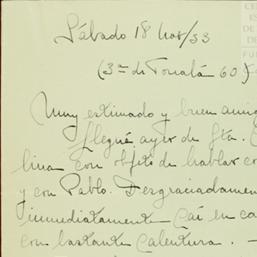 Sábado 18 Nov/33
(3ª de Tonalá 60)
Muy estimado y buen amig
Llegué ayer de Sta. C
lina con objeto de hablar co
y con Pablo. Desgraciadamen
inmediatamente caí en ca
con bastante calentura. —